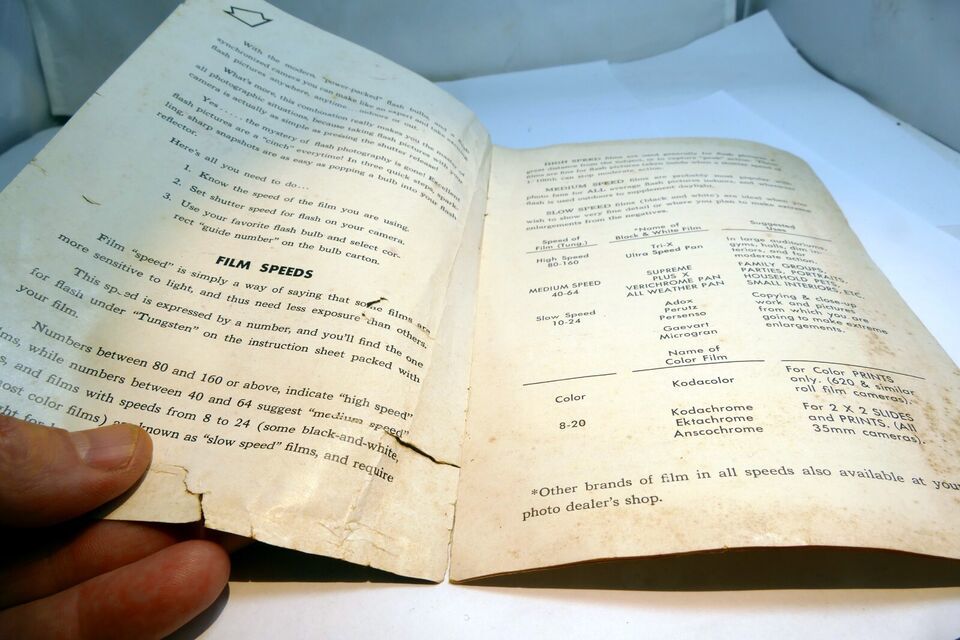 With the modern "power-packed" flash bulbs, and a
synchronized camera you can make like an expert and take
flash pictures anywhere, anytime indoors or out.
What's more, this combination really makes you the master of
all photographic situations, because taking flash pictures with your
camera is actually as simple as pressing the shutter release.
Yes . . . . . the mystery of flash photography is gone! Excellent
flash pictures are a "cinch" everytime! In three quick steps, spark-
ling, sharp snapshots are as easy as popping a bulb into your flash
reflector.
Here's all you need to do—
1. Know the speed of the film you are using.
2. Set shutter speed for flash on your camera.
3. Use your favorite flash bulb and select cor-
rect "guide number" on the bulb carton.
FILM SPEEDS
Film "speed" is simply a way of saying that some films are
more sensitive to light, and thus need less exposure than others.
This speed is expressed by a number, and you'll find the one
for flash under "Tungsten" on the instruction sheet packed with
your film.
Numbers between 80 and 160 or above, indicate "high speed"
while numbers between 40 and 64 suggest "medium speed"
and films with speeds from 8 to 24 (some black-and-white,
most color films) known as "slow speed" films, and require
HIGH SPEED films are used generally for flash pictures a
great distance from the subject, or to capture action.
films are fine for flash pictures taken indoors when a speed of
can stop moderate action.
MEDIUM SPEED films are probably most popular with
photo fans for ALL average flash pictures indoors, and whenever
flash is used outdoors to supplement daylight.
SLOW SPEED films (black and white) are ideal when you
wish to show very fine detail or where you plan to make extreme
enlargements from the negatives.
Speed of Film (Tung.) *Name of Black & White Film Suggested Uses
High Speed 80-160 Tri-X Ultra Speed Pan In large auditoriums, gyms, halls, dim interiors, and for moderate action.
MEDIUM SPEED 40-64 SUPREME PLUS X VERICHROME PAN ALL WEATHER PAN FAMILY GROUPS, PARTIES, PORTRAITS, HOUSEHOLD PETS, SMALL INTERIORS, ETC.
Slow Speed 10-24 Adox Perutz Persenso Gaevart Microgran Copying & close-up work and pictures from which you are going to make extreme enlargements.
Name of
Color Film
Color Kodacolor For Color PRINTS only. (620 & similar roll film cameras).
8-20 Kodachrome Ektachrome Anscochrome For 2 X 2 SLIDES and PRINTS. (All 35mm cameras).
*Other brands of film in all speeds also available at your
photo dealer's shop.